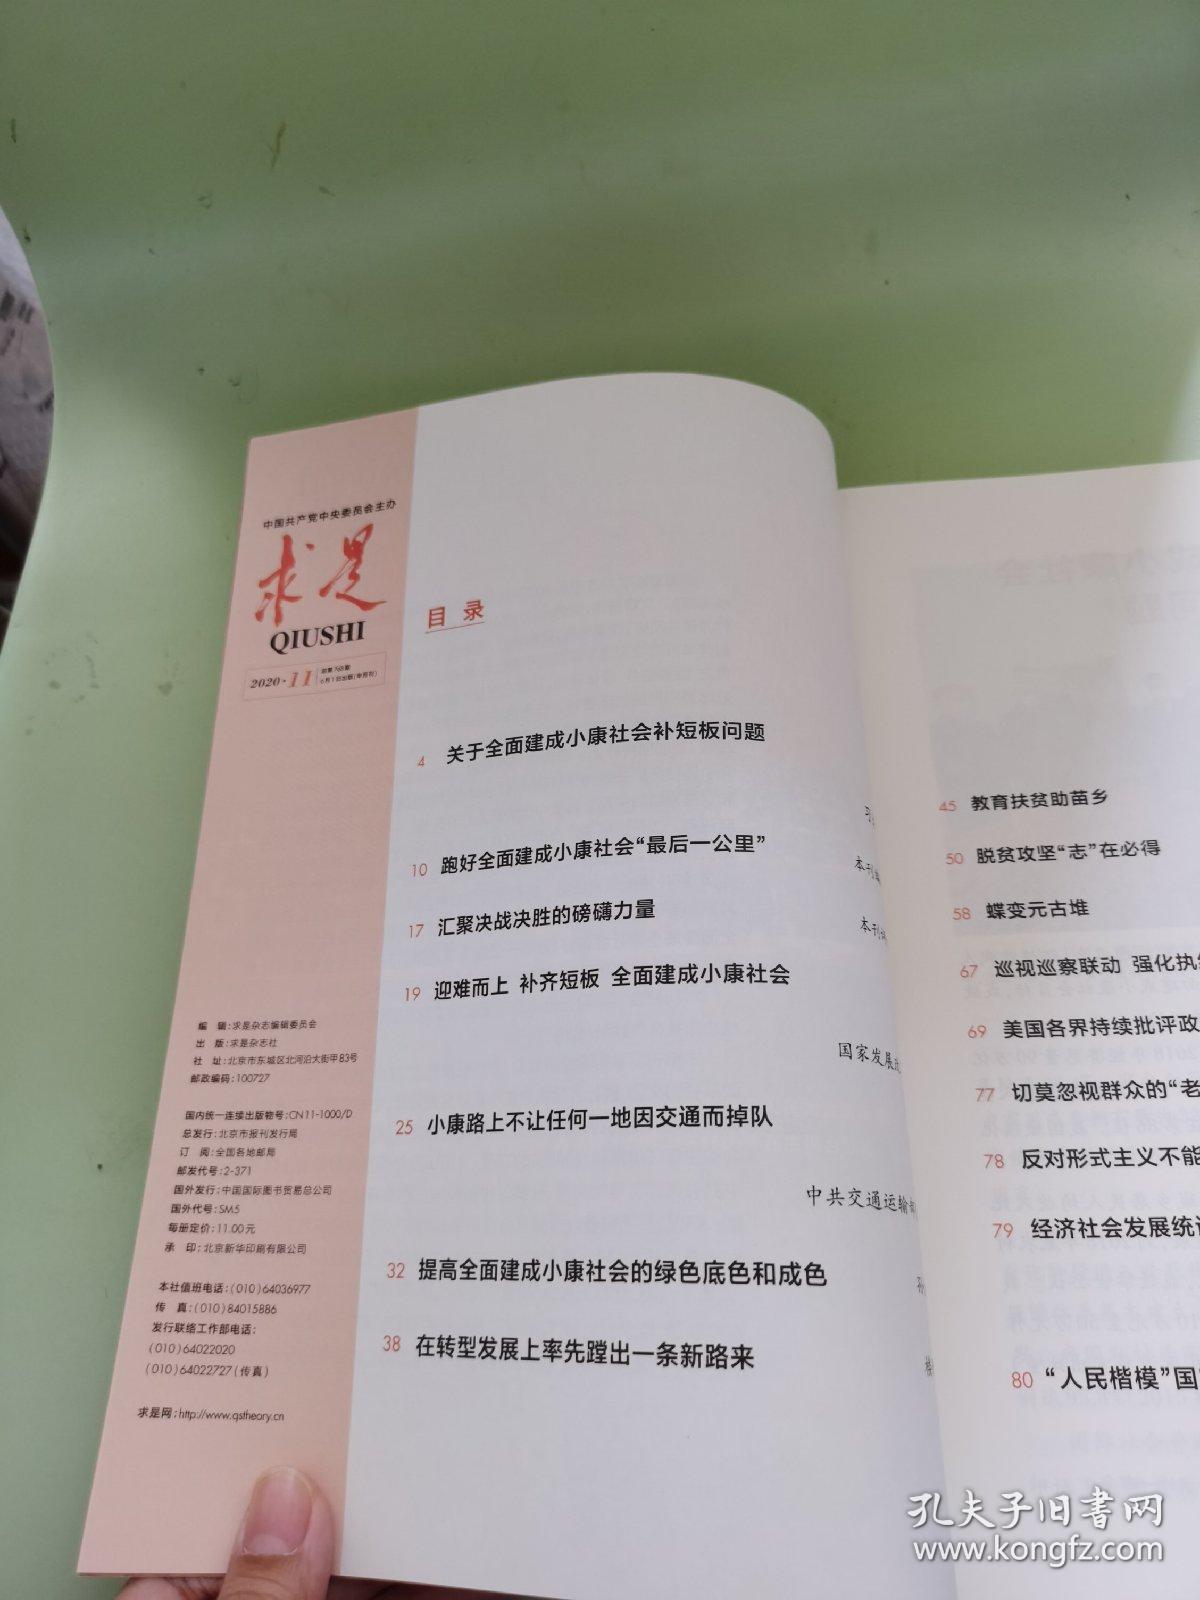 中国共产党中央委员会主办
求是
QIUSHI
2020·11
总第768期
6月1日出版(半月刊)
编 辑:求是杂志编辑委员会
出 版:求是杂志社
社 址:北京市东城区北河沿大街甲83号
邮政编码:100727
国内统一连续出版物号:CN11-1000/D
总发行:北京市报刊发行局
订 阅:全国各地邮局
邮发代号:2-371
国外发行:中国国际图书贸易总公司
国外代号:SM5
每册定价:11.00元
承 印:北京新华印刷有限公司
本社值班电话:(010)64036977
传 真:(010)84015886
发行联络工作部电话:
(010)64022020
(010)64022727(传真)
求是网:http://www.qstheory.cn
目 录
4 关于全面建成小康社会补短板问题
习
10 跑好全面建成小康社会“最后一公里”
本刊编
17 汇聚决战决胜的磅礴力量
本刊编
19 迎难而上 补齐短板 全面建成小康社会
国家发展改
25 小康路上不让任何一地因交通而掉队
中共交通运输部
32 提高全面建成小康社会的绿色底色和成色
38 在转型发展上率先蹚出一条新路来
45 教育扶贫助苗乡
50 脱贫攻坚“志”在必得
58 蝶变元古堆
67 巡视巡察联动 强化执纪
69 美国各界持续批评政
77 切莫忽视群众的“老
78 反对形式主义不能
79 经济社会发展统计
80 “人民楷模”国
孔夫子旧书网
www.kongfz.com